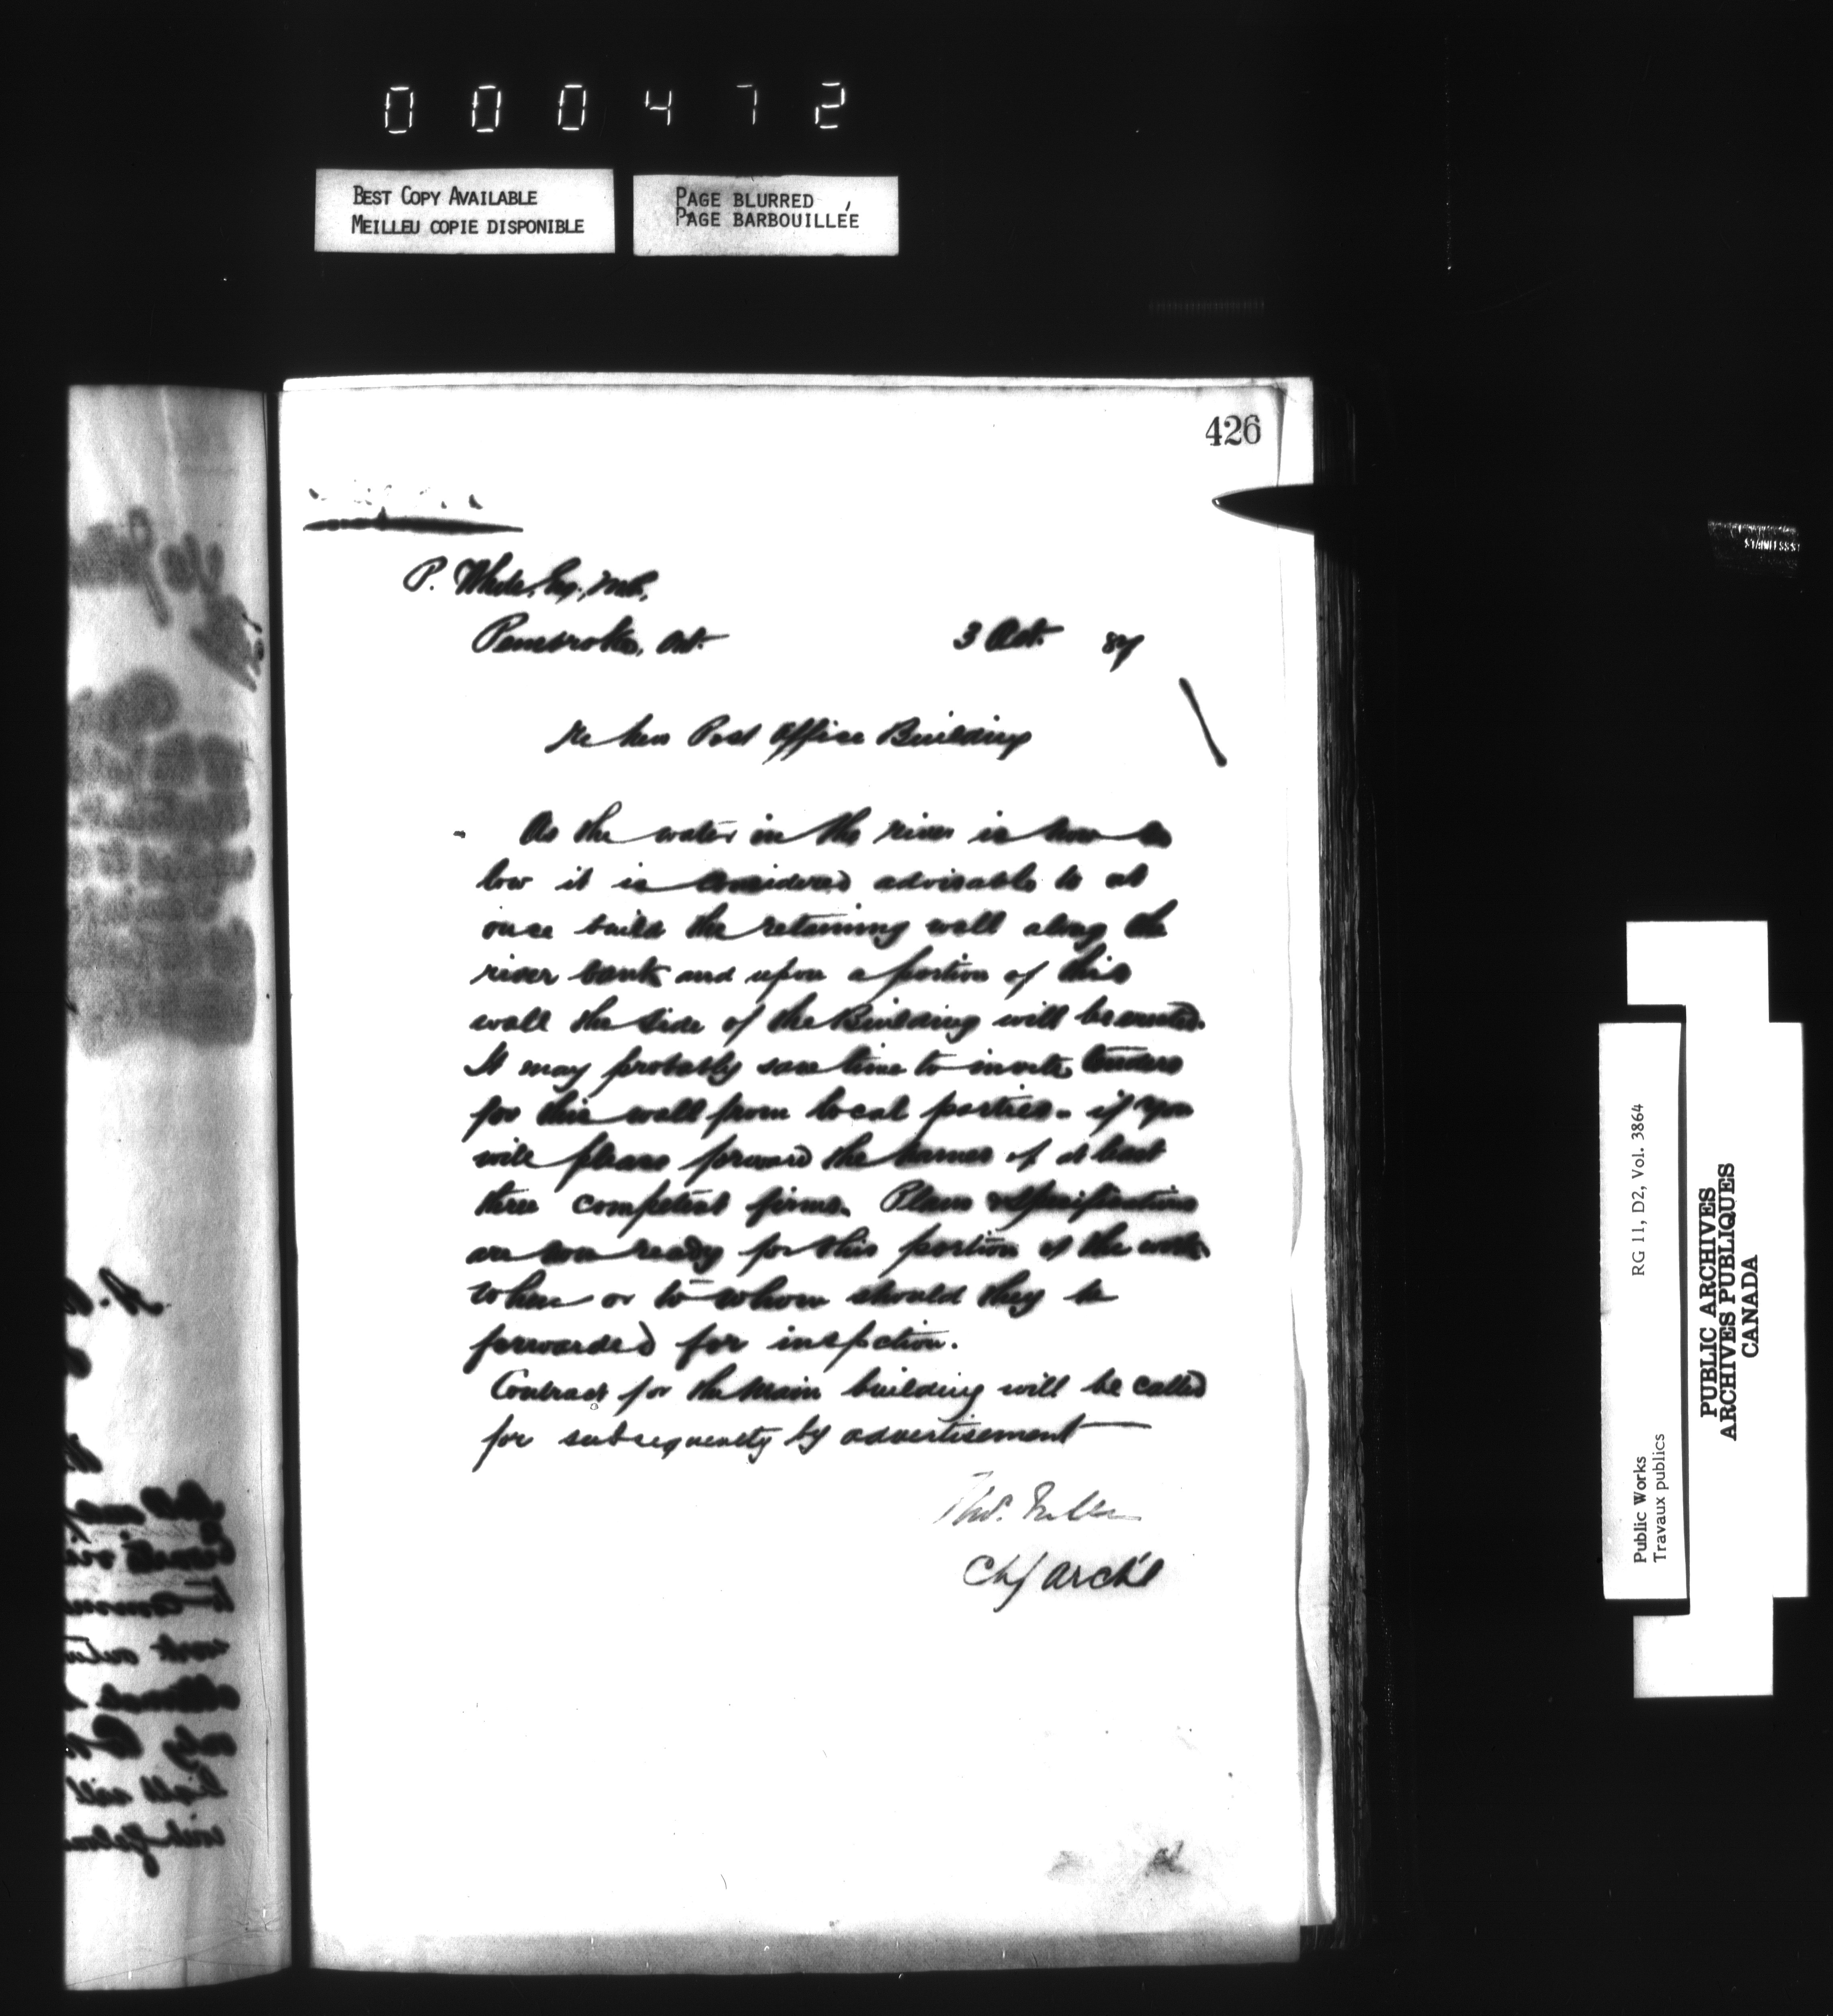 000472
BEST COPY AVAILABLE
MEILLEU COPIE DISPONIBLE
PAGE BLURRED
PAGE BARBOUILLÉE
426
P. White, Esq., M.P.,
Pembroke, Ont. 3 Oct. 87
Re New Post Office Building
As the water in the river is now so
low it is considered advisable to at
once build the retaining wall along the
river bank and upon a portion of this
wall the side of the Building will be erected.
It may probably save time to invite tenders
for this wall from local parties - if you
will please forward the names of at least
three competent firms. Plans & specifications
are now ready for this portion of the work.
Where or to whom should they be
forwarded for inspection.
Contract for the main building will be called
for subsequently by advertisement
Thos. Fuller
Chf Archt
STAINLESS
Public Works
Travaux publics
RG 11, D2, Vol. 3864
PUBLIC ARCHIVES
ARCHIVES PUBLIQUES
CANADA